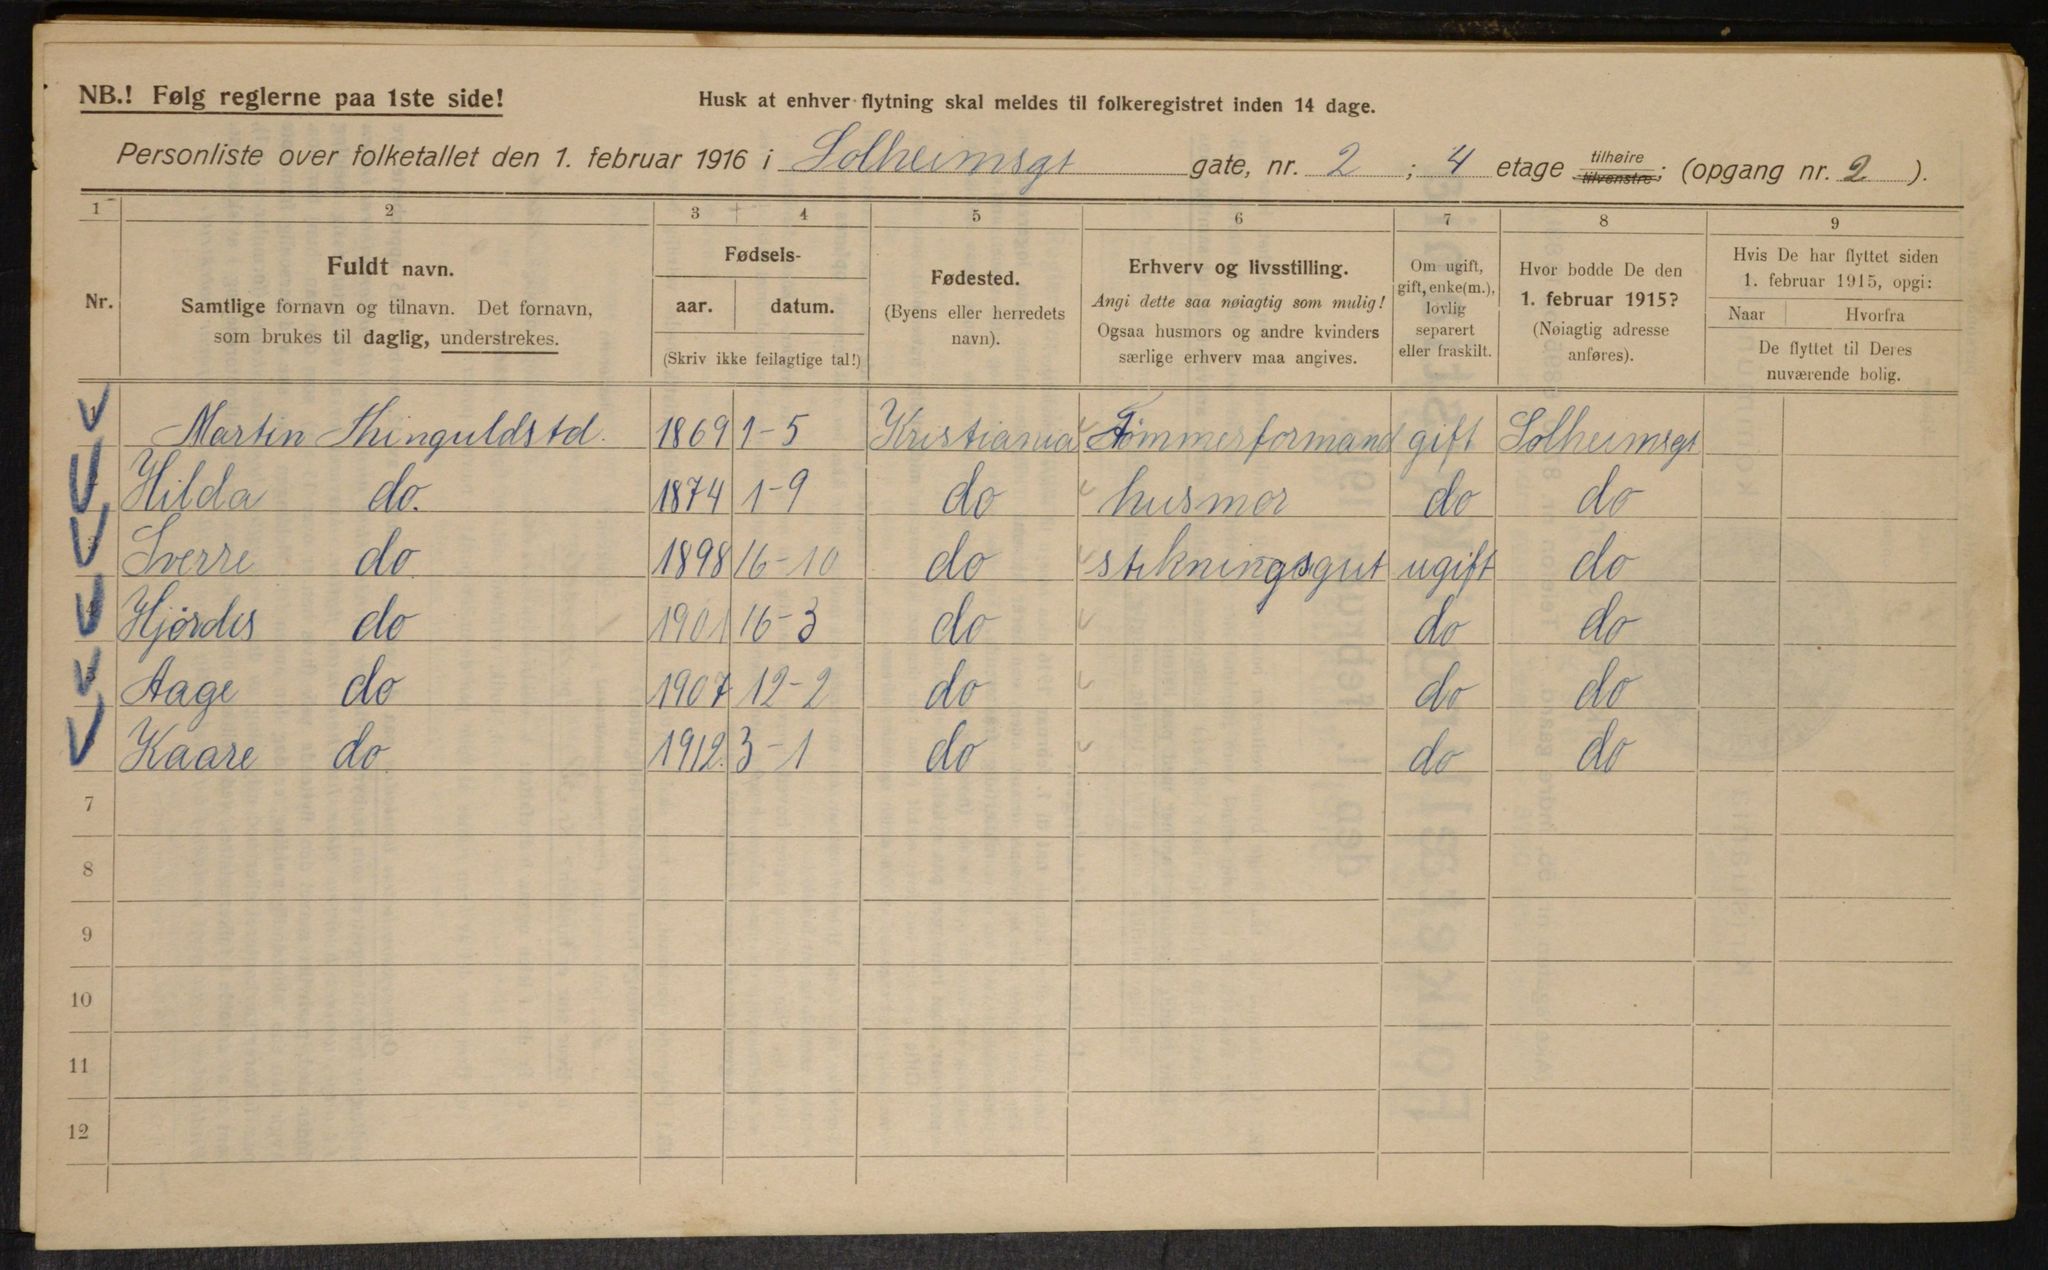 NB.! Følg reglerne paa 1ste side!
Husk at enhver flytning skal meldes til folkeregistret inden 14 dage.
Personliste over folketallet den 1. februar 1916 i Solheimsgt gate, nr. 2 ; 4 etage tilhøire tilvenstre; (opgang nr. 2 ).
1 2 3 4 5 6 7 8 9
Nr.
Fuldt navn.
Samtlige fornavn og tilnavn. Det fornavn,
som brukes til daglig, understrekes.
Fødsels-
aar. datum.
(Skriv ikke feilagtige tal!)
Fødested.
(Byens eller herredets
navn).
Erhverv og livsstilling.
Angi dette saa nøiagtig som mulig!
Ogsaa husmors og andre kvinders
særlige erhverv maa angives.
Om ugift,
gift, enke(m.),
lovlig
separert
eller fraskilt.
Hvor bodde De den
1. februar 1915?
(Nøiagtig adresse
anføres).
Hvis De har flyttet siden
1. februar 1915, opgi:
Naar Hvorfra
De flyttet til Deres
nuværende bolig.
Martin 1869 1-5 Kristiania Tømmerformand gift Solheimsgt
Hilda do. 1874 1-9 do husmor do do
Sverre do 1898 16-10 do stikningsgut ugift do
Hjørdis do 1901 16-3 do do do
Aage do 1907 12-2 do do do
Kaare do 1912. 3-1 do do do
7
8
9
10
11
12